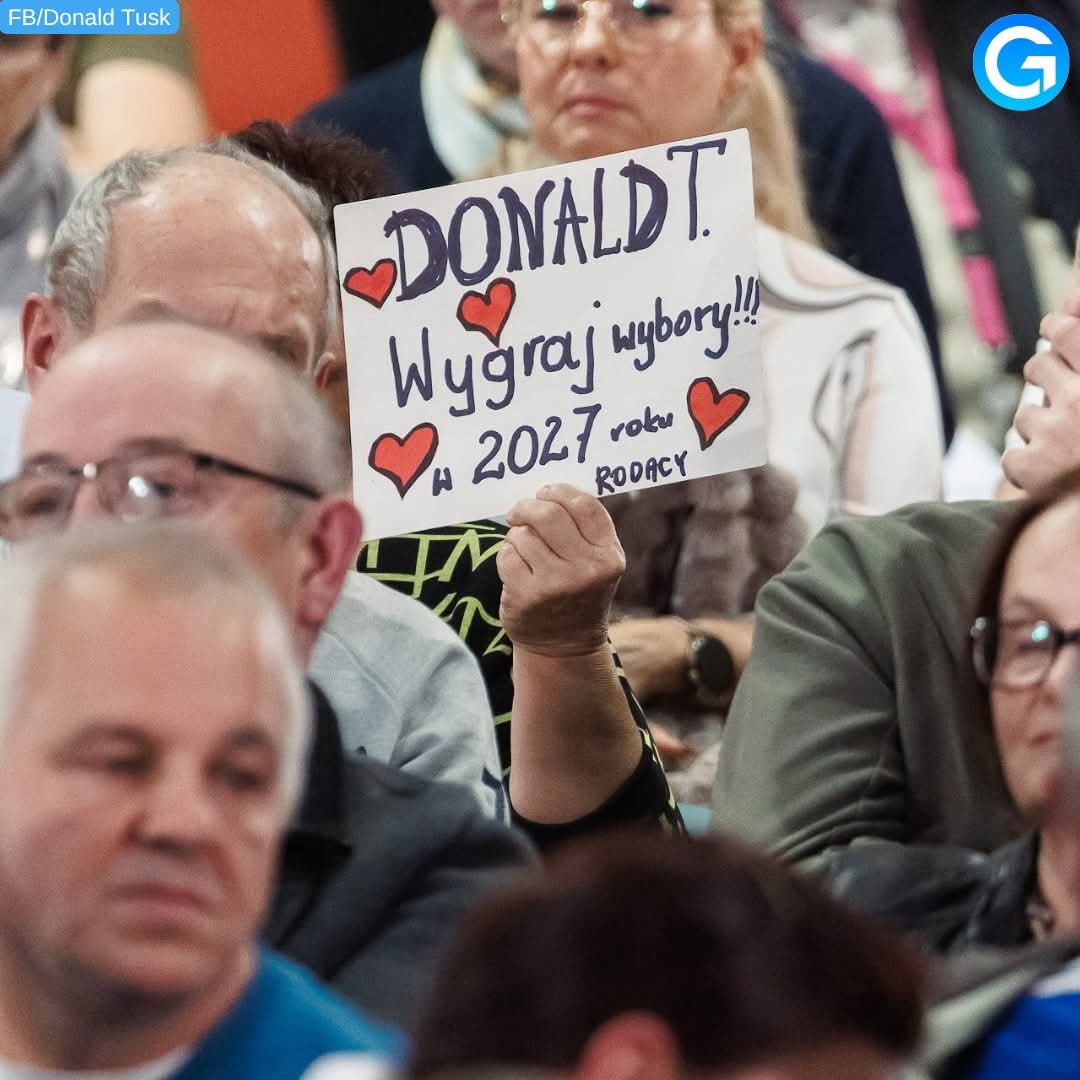 FB/Donald Tusk
G
DONALD T.
Wygraj wybory!!!
w 2027 roku
RODACY